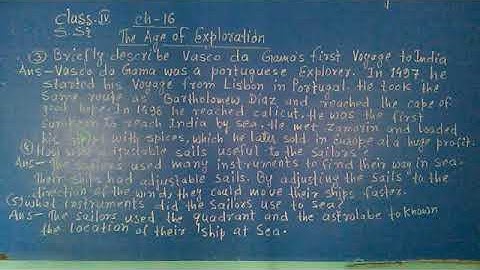 Class-IV ch-16
S.St The Age of Exploration
③ Briefly describe Vasco da Gama's first Voyage to India
Ans-Vasco da Gama was a portuguese Explorer. In 1497 he
started his Voyage from Lisbon in Portugal. He took the
same route as Bartholomew Diaz and reached the cape of
good hope. In 1498 he reached calicut. He was the first
European to reach India by sea. He met Zamorin and loaded
his with spices, which he later sold in Europe at a huge profit.
④ How were adjustable sails useful to the sailors
Ans- The sailors used many instruments to find their way in sea.
Their ships had adjustable sails. By adjusting the sails to the
direction of the wind, they could move their ships faster.
⑤ what instruments did the Sailors use to sea?
Ans- The sailors used the quadrant and the astrolabe to known
the location of their ship at Sea.